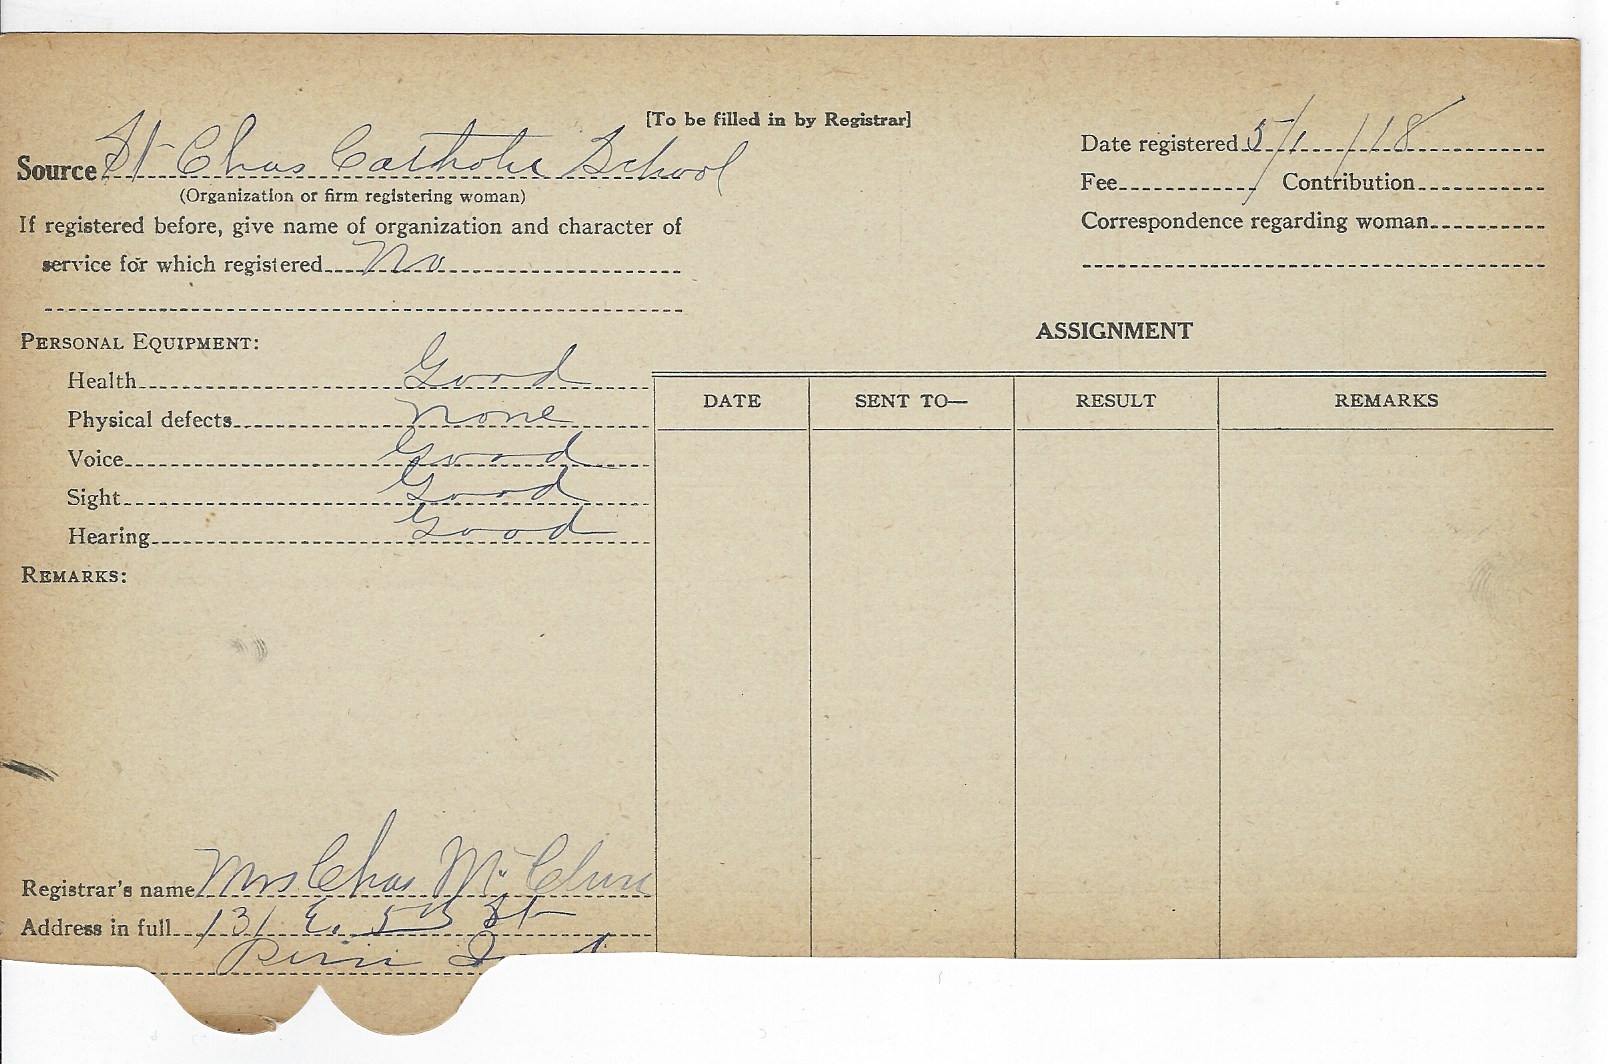 [To be filled in by Registrar]
Source St Chas Catholic School
(Organization or firm registering woman)
If registered before, give name of organization and character of
service for which registered No
Date registered 5/1/18
Fee Contribution
Correspondence regarding woman
PERSONAL EQUIPMENT:
Health Good
Physical defects None
Voice Good
Sight Good
Hearing Good
REMARKS:
ASSIGNMENT
DATE SENT TO— RESULT REMARKS
Registrar's name Mrs Chas McClure
Address in full 131 E. 5th St
Peru Ind